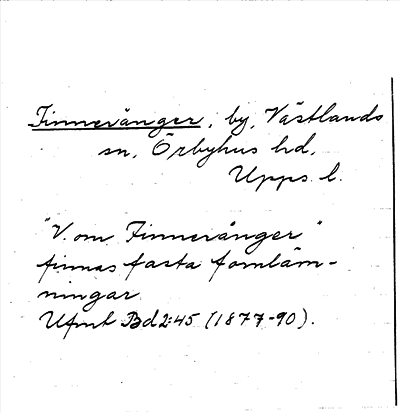 Finneränger, by, Västlands
sn, Örbyhus hd,
Upps. l.
"V. om Finneränger"
finnas fasta fornläm-
ningar.
Ufmt Bd 2:45 (1877-90).